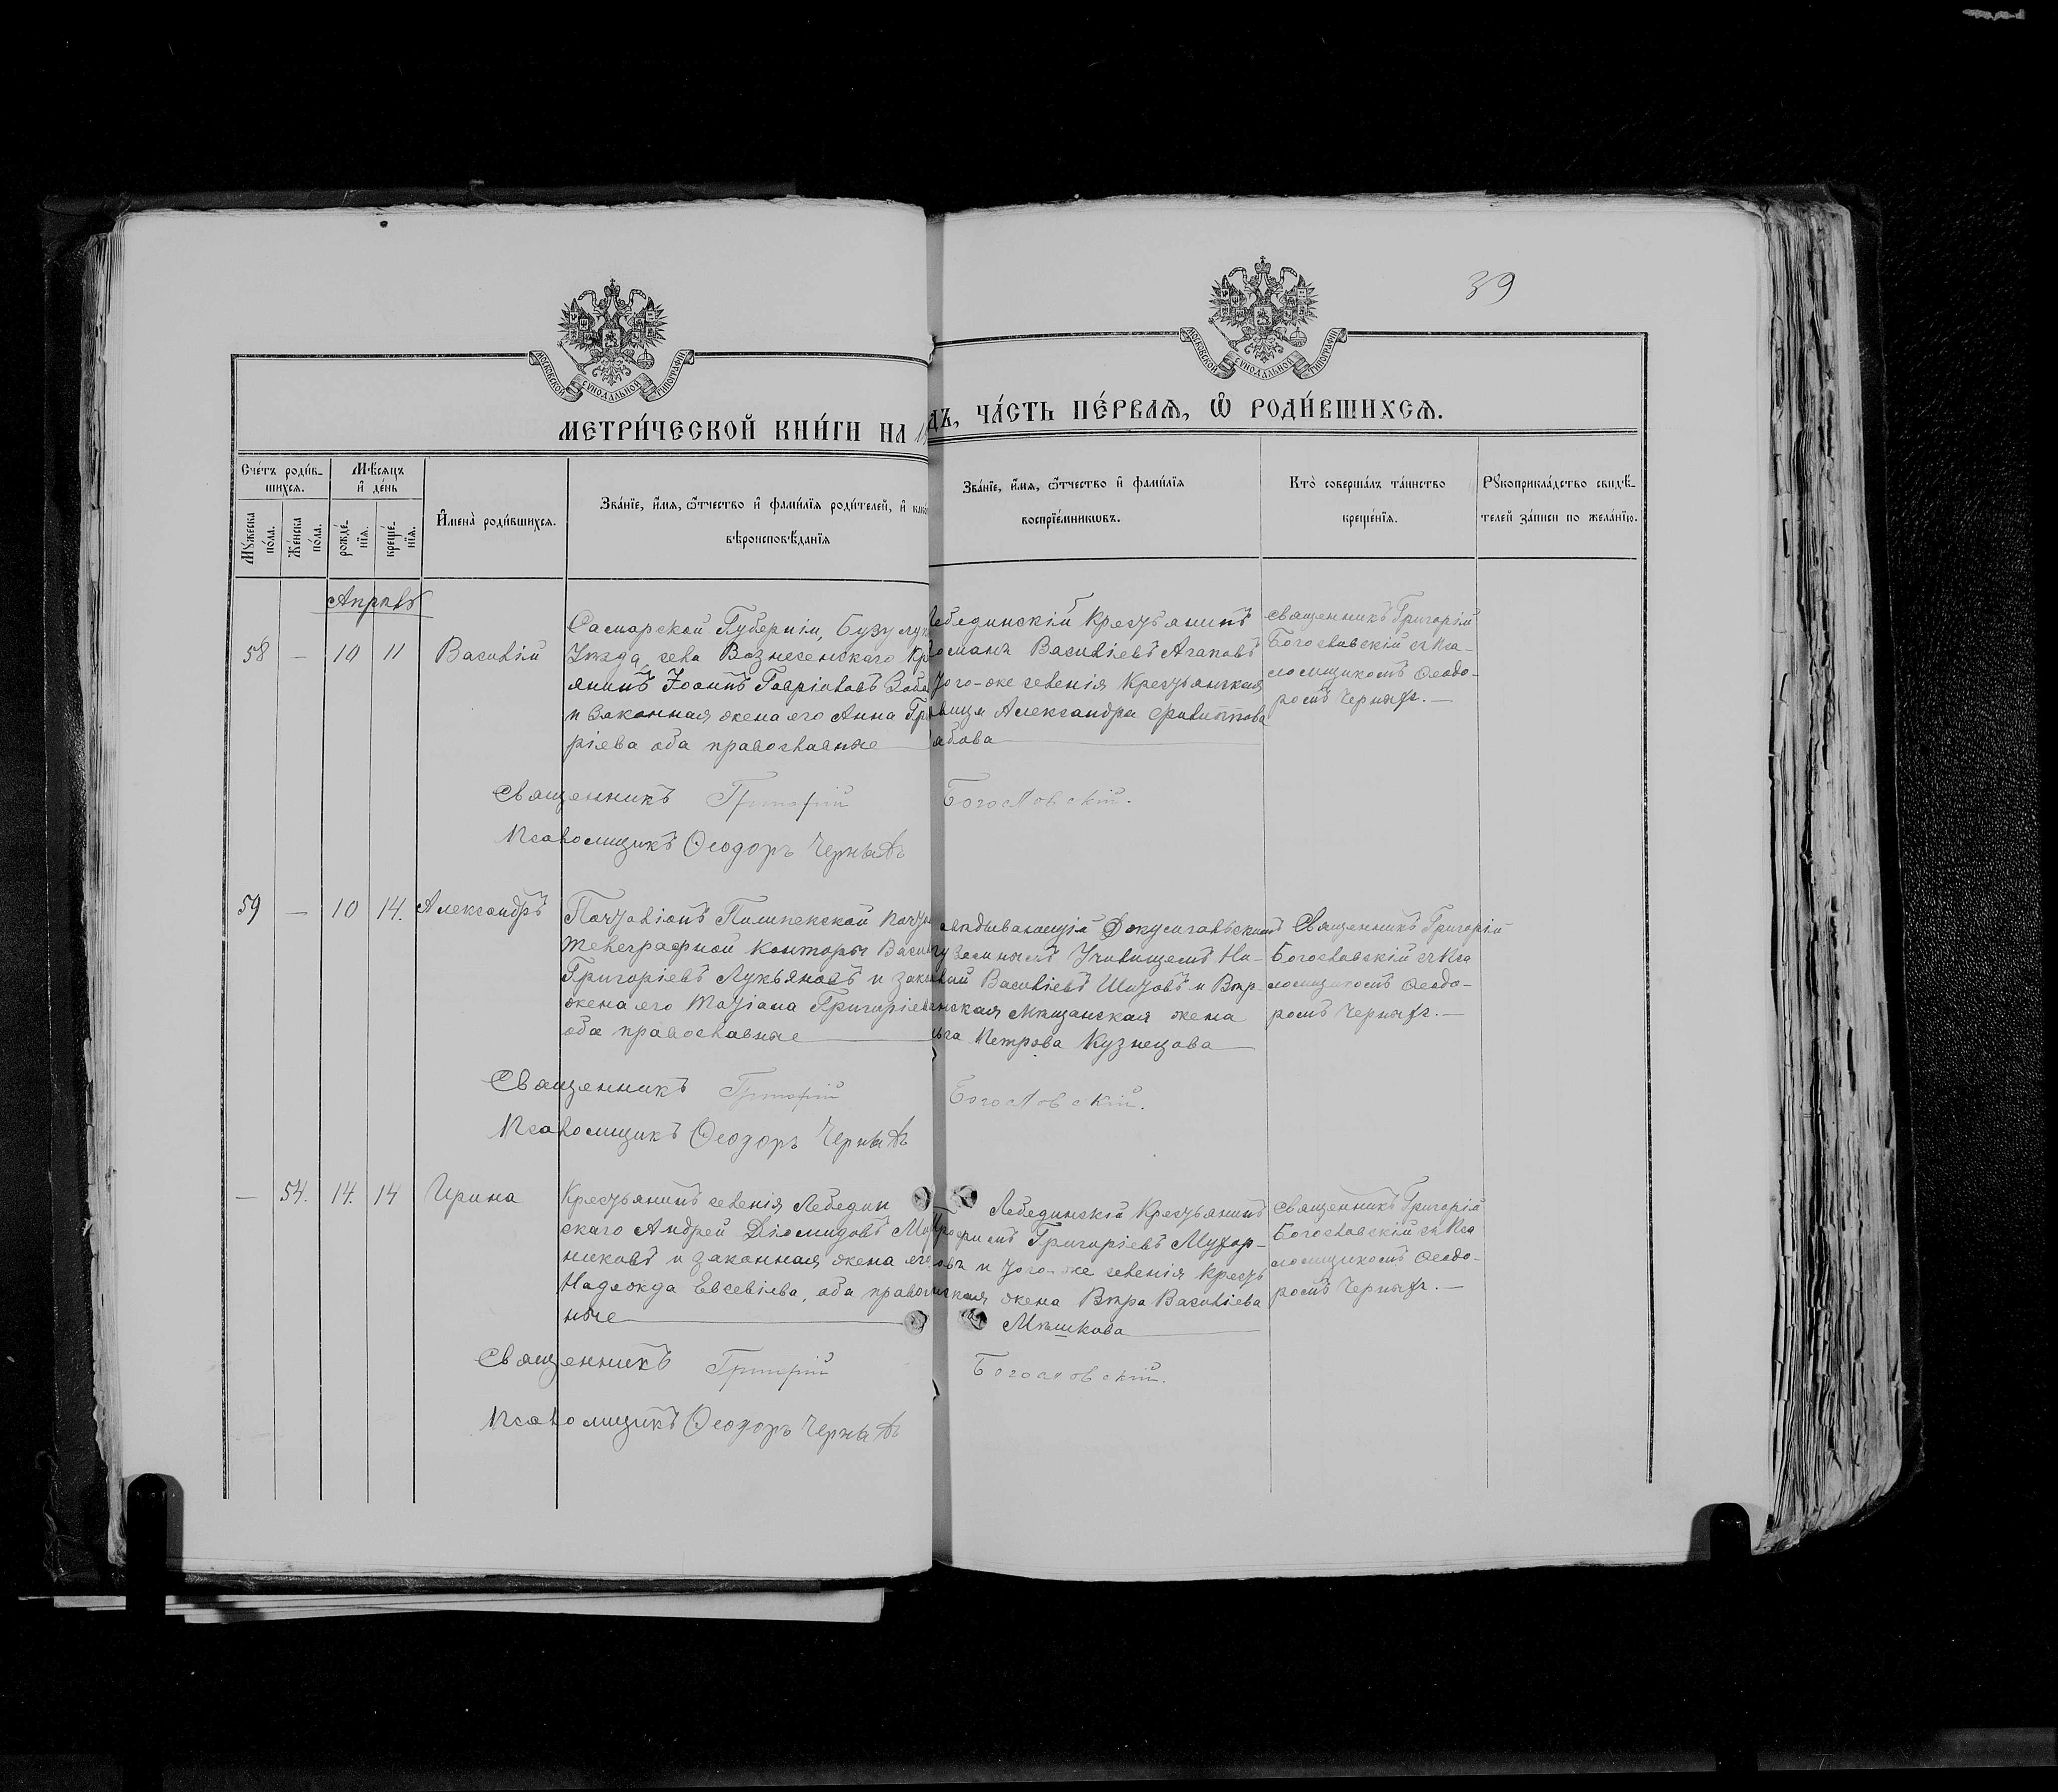 39
МОСКОВСКОЙ СУНОДАЛЬНОЙ ТИПОГРАФИИ
МОСКОВСКОЙ СУНОДАЛЬНОЙ ТИПОГРАФИИ
МЕТРИ́ЧЕСКОЙ КНИ́ГИ НА
ДЪ, ЧА́СТЬ ПЕ́РВАѦ, Ѽ РОДИ́ВШИХСѦ.
Сче́тъ роди́в-
шихсѧ.
Мѣ́сѧцъ
и҆ де́нь
Мꙋ́жеска
по́ла.
Же́нска
по́ла.
рожде́-
нїѧ.
креще́-
нїѧ.
И҆мена̀ роди́вшихсѧ.
Зва́нїе, и҆́мѧ, ѻ҆́тчество и҆ фами́лїѧ роди́телей, и҆ како
вѣроисповѣ́данїѧ
Зва́нїе, и҆́мѧ, ѻ҆́тчество и҆ фами́лїѧ
воспрїе́мникѡвъ.
Кто̀ соверша́лъ та́инство
креще́нїѧ.
Рꙋкоприкла́дство свидѣ́-
телей за́писи по жела́нїю.
Апрѣль
58 — 10 11 Василій
Самарской Губерніи, Бузулук
Уѣзда, села Вознесенскаго Кр
янинъ Іоаннъ Гавріиловъ
и законная жена его Анна Гр
ріева оба православные
ебединскій Крестьянинъ
оманъ Василіевъ Агаповъ
того-же селенія Крестьянская
вица Александра Филиппова
абова
Священникъ Григорій
Богословскій съ Пса
ломщикомъ Ѳеодо-
ромъ Черныхъ. —
Священникъ Григорій Богословскій.
Псаломщикъ Ѳеодоръ Черныхъ
59 — 10 14. Александръ
Почталіонъ Пишпекской Почто
телеграфной Конторы Васил
Григоріевъ Лукьяновъ и закон
жена его Татіана Григоріева
оба православные
авѣдывающій Джумгальскимъ
узескимъ Училищемъ Ни-
лай Василіевъ Шитовъ и Вѣр-
нская Мѣщанская жена
ьга Петрова Кузнецова
Священникъ Григорій
Богословскій съ Пса
ломщикомъ Ѳеодо-
ромъ Черныхъ. —
Священникъ Григорій Богословскій.
Псаломщикъ Ѳеодоръ Черныхъ
— 54. 14. 14 Ирина
Крестьянинъ селенія Лебедин
скаго Андрей Діомидовъ
никовъ и законная жена его
Надежда Евсевіева, оба правос
ные
Лебединскій Крестьянинъ
рофимъ Григоріевъ
овъ и того-же селенія Кресть
нская жена Вѣра Василіева
Мѣшкова
Священникъ Григорій
Богословскій съ Пса
ломщикомъ Ѳеодо-
ромъ Черныхъ. —
Священникъ Григорій Богословскій.
Псаломщикъ Ѳеодоръ Черныхъ